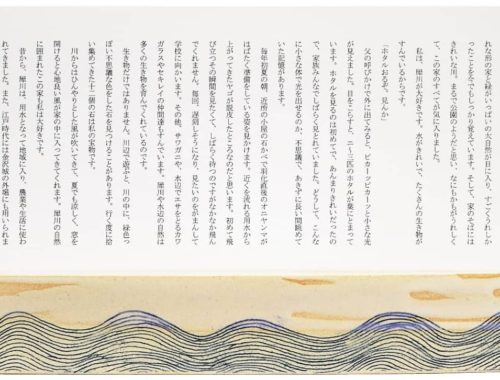 れな形の家と緑がいっぱいの景色を見て、すごくうれしか
ったことを今でもしっかり覚えています。そして、家のそばには
きれいな川。まるで公園のようだと思い、なにもかもがうれしく
て、この家のすべてが気に入りました。
私は、犀川が大好きです。水がきれいで、たくさんの生き物が
すんでいるからです。
「ホタルおるぞ。見んか」
父の呼びかけで外に出てみると、ピカーッピカーッと小さな光
が見えました。目をこらすと、二〜三匹のホタルが葉にとまって
います。ホタルを見るのは初めてで、あんまりきれいだったの
で、家族みんなでしばらく見とれていました。どうして、こんな
に小さな体で光を出せるのか、不思議で、あきずに長い間眺めて
いた記憶があります。
毎年初夏の朝、近所の小屋の石かべで羽化直後のオニヤンマが
はばたく準備をしている姿を見かけます。近くを流れる用水から
上がってきたヤゴが脱皮したところなのだと思います。初めて飛
び立つその瞬間を見たくて、しばらく待つのですがなかなか飛ん
でくれません。毎回、遅刻しそうになり、見たいのをがまんして
学校に向かいます。その他、サワガニや、水辺でエサをとるカワ
ガラスやセキレイの仲間達もすんでいます。犀川や水辺の自然は
多くの生き物を育んでくれているのです。
生き物だけではありません。川辺で遊ぶと、川の中に、緑色っ
ぽい不思議な色をした石を見つけることがあります。行く度に拾
い集めてきた十二個の石は私の宝物です。
川からはひんやりとした風が吹いてきて、夏でも涼しく、窓を
開けると心地良い風が家の中に入ってきてくれます。犀川の自然
に囲まれたこの家も私は大好きです。
昔から、犀川は、用水となって地域に入り、農業や生活に使わ
れてきました。また、江戸時代には金沢城の外堀にも用いられま